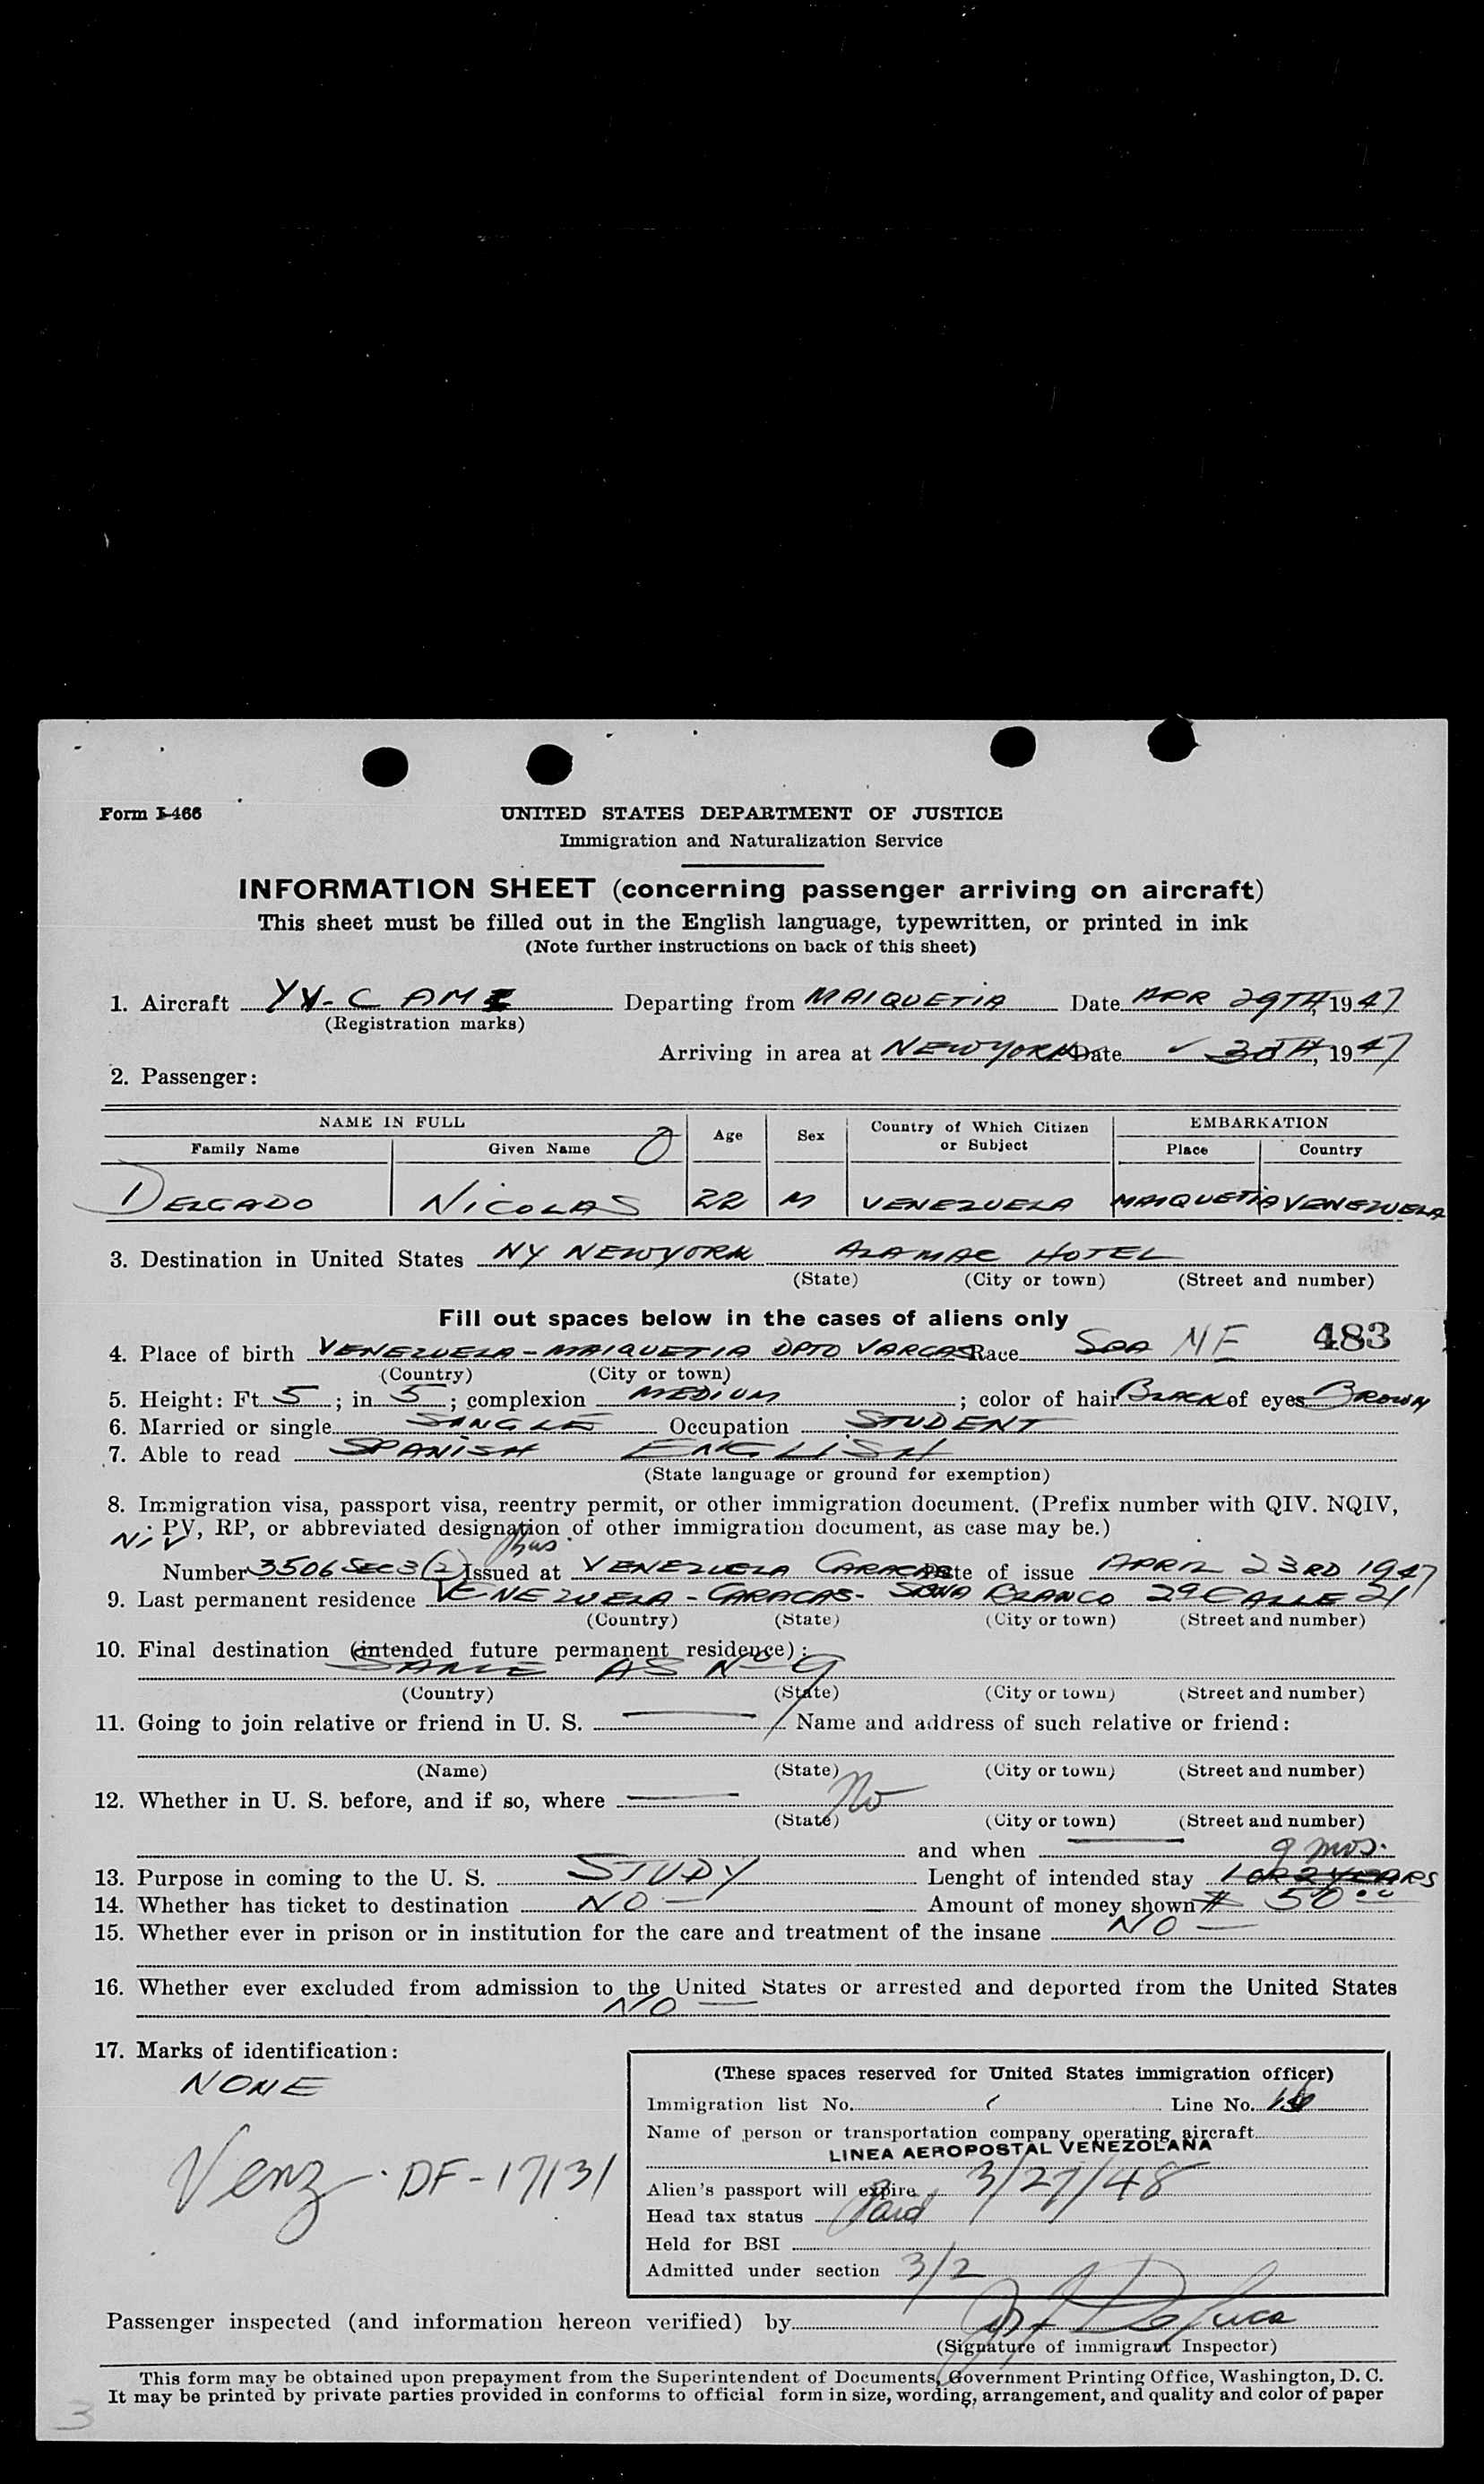 Form I-466
UNITED STATES DEPARTMENT OF JUSTICE
Immigration and Naturalization Service
INFORMATION SHEET (concerning passenger arriving on aircraft)
This sheet must be filled out in the English language, typewritten, or printed in ink
(Note further instructions on back of this sheet)
1. Aircraft YV-C AM Departing from MAIQUETIA Date APR 29TH, 1947
(Registration marks)
Arriving in area at NEWYORK Date 30TH, 1947
2. Passenger:
NAME IN FULL Age Sex Country of Which Citizen or Subject EMBARKATION
Family Name Given Name Place Country
DELGADO NICOLAS 22 M VENEZUELA MAIQUETIA VENEZUELA
3. Destination in United States NY NEWYORK ALAMAC HOTEL
(State) (City or town) (Street and number)
Fill out spaces below in the cases of aliens only
4. Place of birth VENEZUELA - MAIQUETIA DPTO VARGAS Race 483
(Country) (City or town)
5. Height: Ft. 5; in 5; complexion MEDIUM; color of hair BLACK of eyes BROWN
6. Married or single SINGLE Occupation STUDENT
7. Able to read SPANISH ENGLISH
(State language or ground for exemption)
8. Immigration visa, passport visa, reentry permit, or other immigration document. (Prefix number with QIV. NQIV,
NIV PV, RP, or abbreviated designation of other immigration document, as case may be.)
Number 3506 SEC 3 (2) Issued at VENEZUELA CARACAS Date of issue APRIL 23RD 1947
9. Last permanent residence VENEZUELA - CARACAS - BLANCO 29 CALLE 21
(Country) (State) (City or town) (Street and number)
10. Final destination (intended future permanent residence):
SAME AS Nº 9
(Country) (State) (City or town) (Street and number)
11. Going to join relative or friend in U. S. Name and address of such relative or friend:
(Name) (State) (City or town) (Street and number)
12. Whether in U. S. before, and if so, where No
(State) (City or town) (Street and number)
and when 9 mos.
13. Purpose in coming to the U. S. STUDY Lenght of intended stay 1 OR 2 YEARS
14. Whether has ticket to destination NO Amount of money shown $ 50.00
15. Whether ever in prison or in institution for the care and treatment of the insane NO
16. Whether ever excluded from admission to the United States or arrested and deported from the United States
NO
17. Marks of identification:
NONE
Venz. DF-17131
(These spaces reserved for United States immigration officer)
Immigration list No. Line No.
Name of person or transportation company operating aircraft
LINEA AEROPOSTAL VENEZOLANA
Alien's passport will expire 3/27/48
Head tax status Paid
Held for BSI
Admitted under section 3/2
Passenger inspected (and information hereon verified) by
(Signature of immigrant Inspector)
This form may be obtained upon prepayment from the Superintendent of Documents, Government Printing Office, Washington, D. C.
It may be printed by private parties provided in conforms to official form in size, wording, arrangement, and quality and color of paper
3